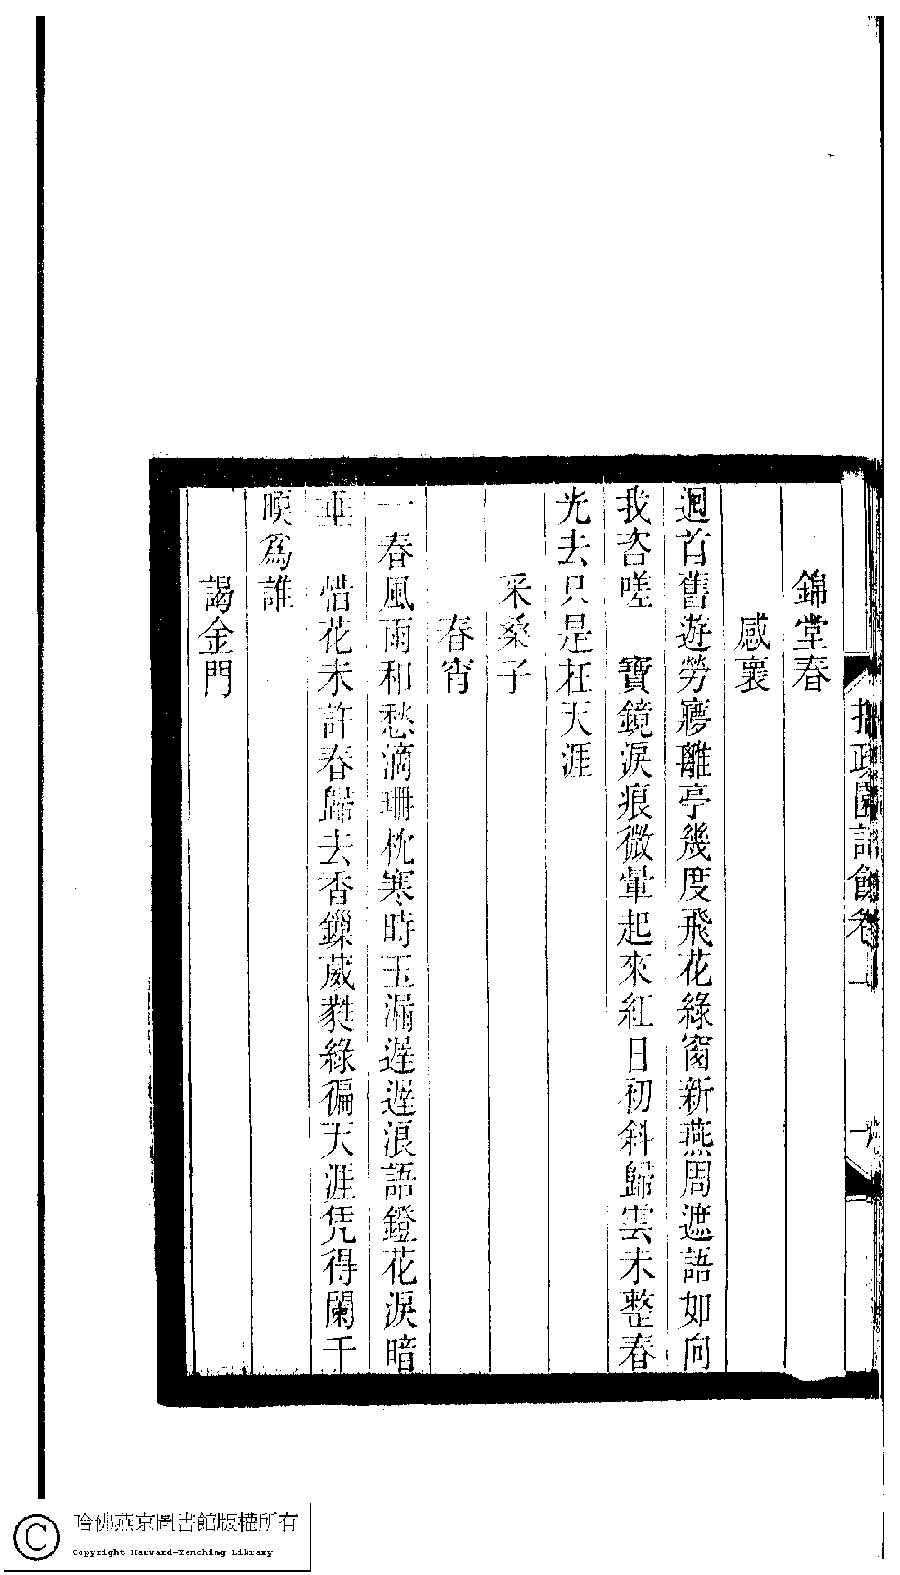 錦堂春
感褱
迴首舊遊勞㝱離亭幾度飛花綠窗新燕周遮語如向
我咨嗟　寶鏡淚痕微暈起來紅日初斜歸雲未整春
光去只是枉天涯
采桑子
春宵
一春風雨和愁滴珊枕寒時玉漏遲遲浪語鐙花淚暗
垂　惜花未許春歸去香鏁葳蕤綠徧天涯凭得闌干
暝為誰
謁金門
政園詩餘卷上
哈佛燕京圖書館版權所有
Copyright Harvard-Yenching Library